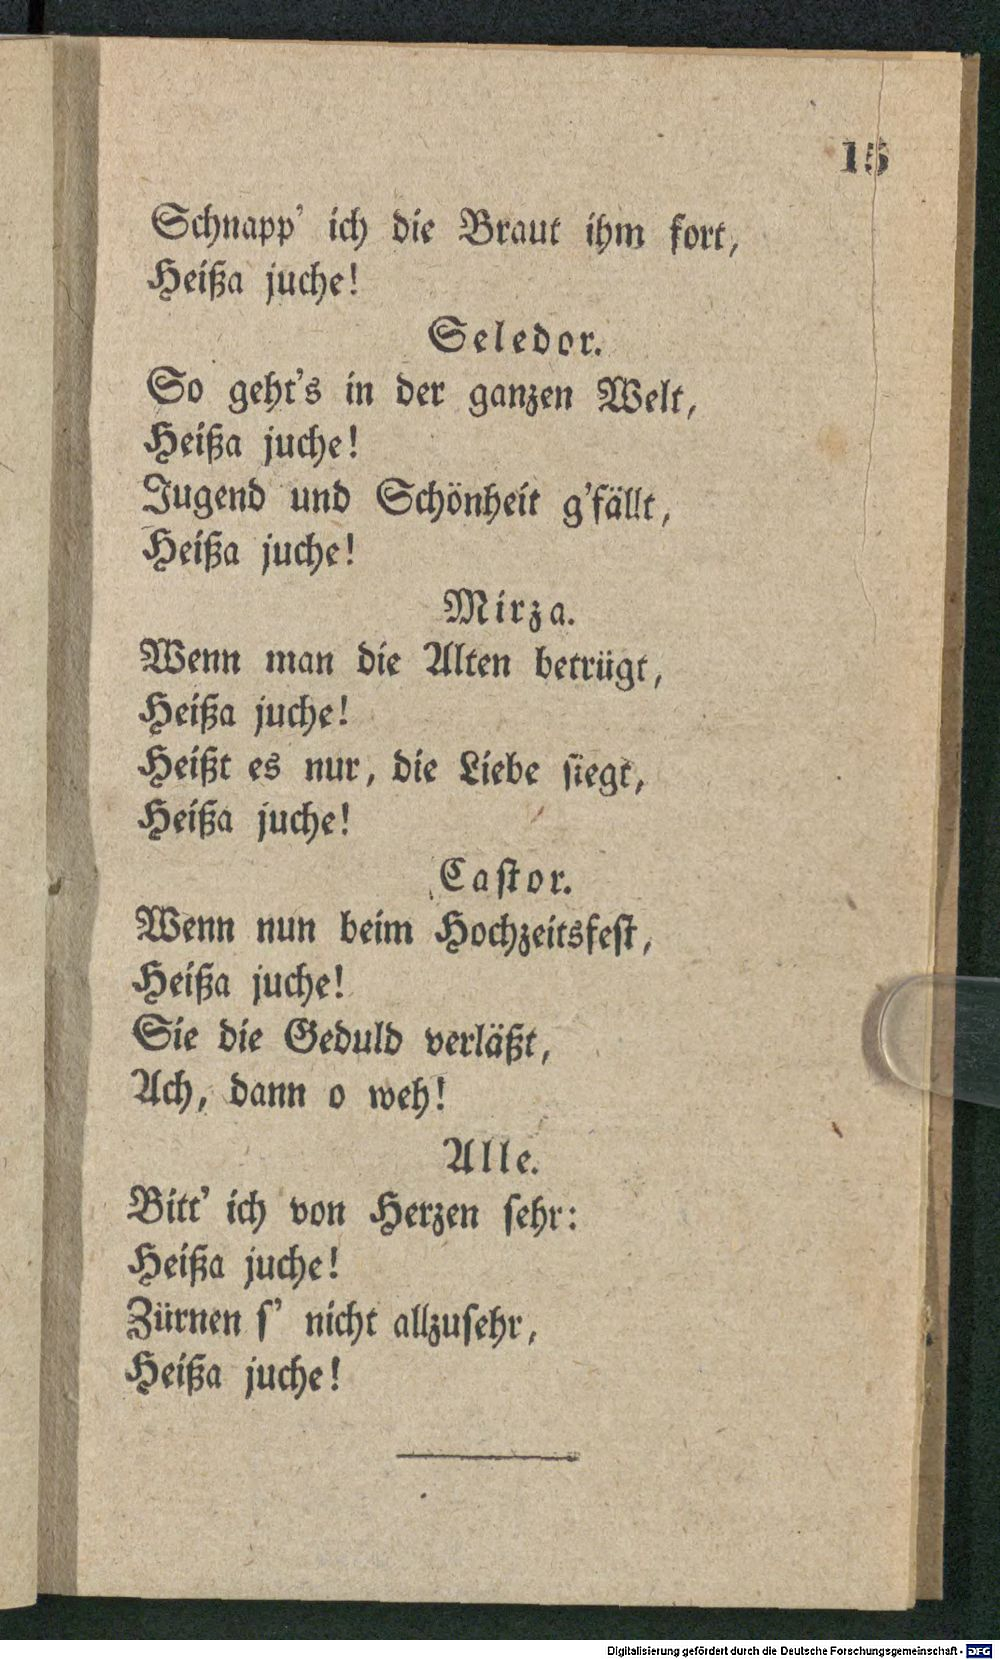 15
Schnapp' ich die Braut ihm fort,
Heißa juche!
Seledor.
So geht's in der ganzen Welt,
Heißa juche!
Jugend und Schönheit g'fällt,
Heißa juche!
Mirza.
Wenn man die Alten betrügt,
Heißa juche!
Heißt es nur, die Liebe siegt,
Heißa juche!
Castor.
Wenn nun beim Hochzeitsfest,
Heißa juche!
Sie die Geduld verläßt,
Ach, dann o weh!
Alle.
Bitt' ich von Herzen sehr:
Heißa juche!
Zürnen s' nicht allzusehr,
Heißa juche!
Digitalisierung gefördert durch die Deutsche Forschungsgemeinschaft - DFG